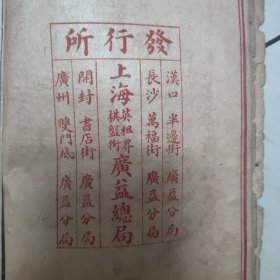 發行所
漢口 半邊街 廣益分局
長沙 萬福街 廣益分局
上海 英租界 棋盤街 廣益總局
開封 書店街 廣益分局
廣州 雙門底 廣益分局